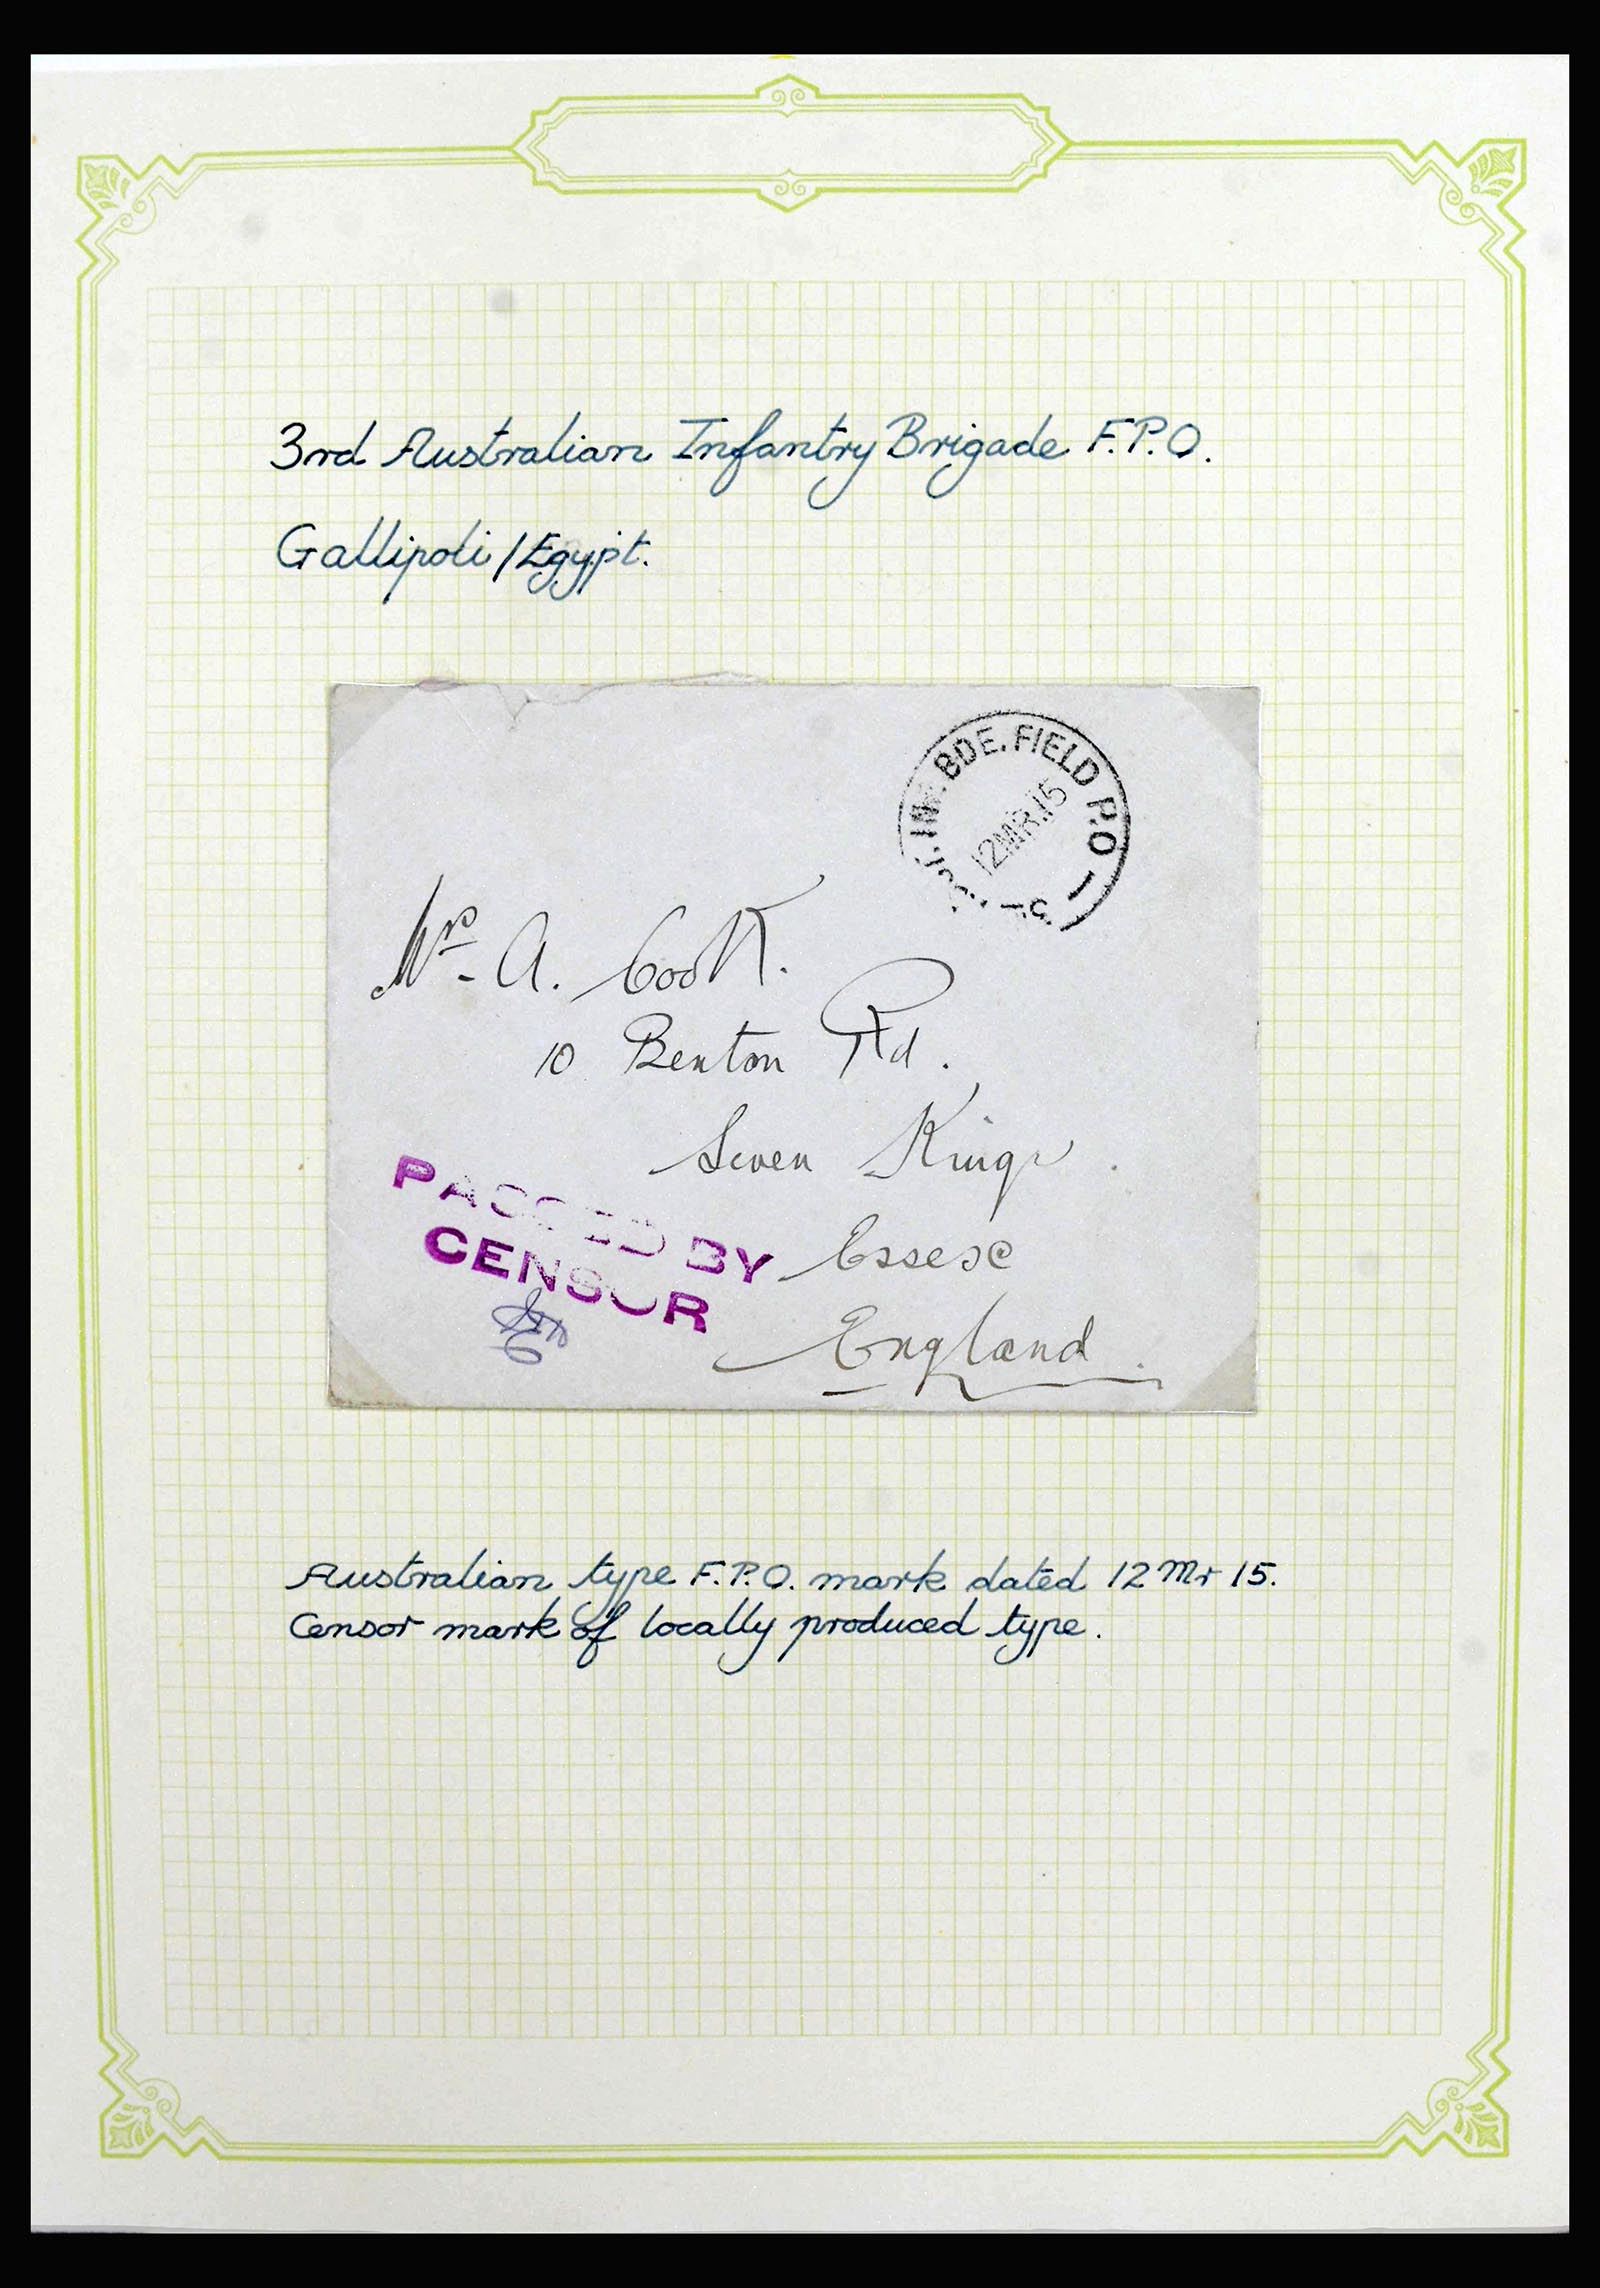 3rd Australian Infantry Brigade F.P.O.
Gallipoli / Egypt.
INF. BDE. FIELD P.O
12MR.15
A. Cook.
10 Benton Rd.
Seven Kings.
Essex
PASSED BY
CENSOR
England.
Australian type F.P.O. mark dated 12 Mr 15.
Censor mark of locally produced type.